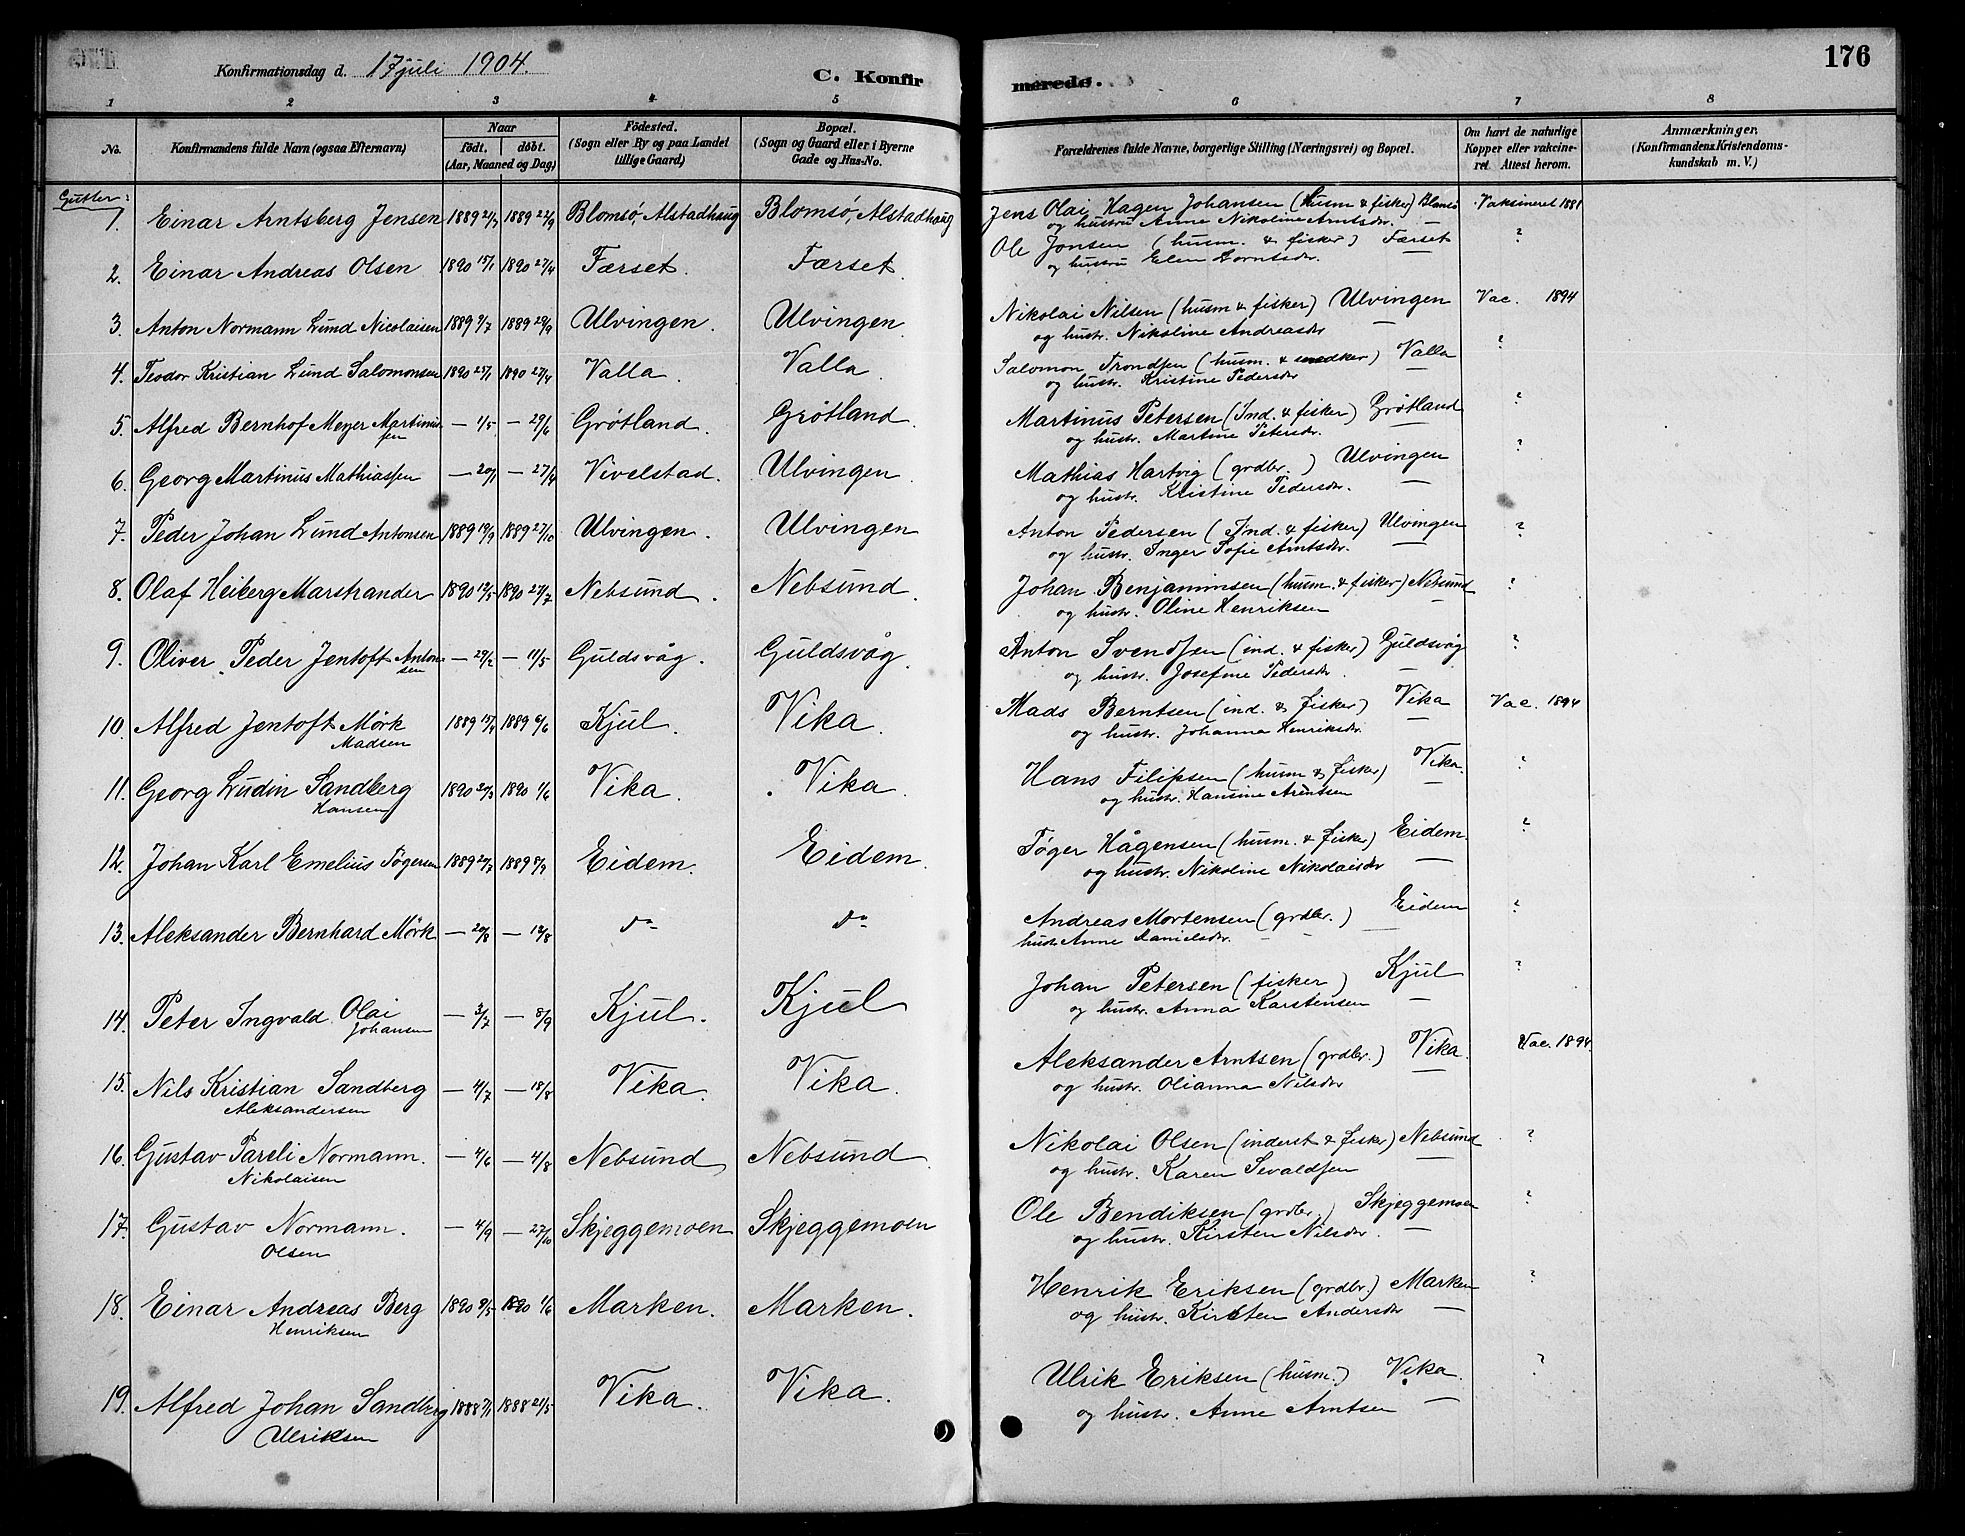 Konfirmationsdag d. 17 juli 1904.
C. Konfirmerede.
176
1 2 3 4 5 6 7 8
No.
Konfirmandens fulde Navn (ogsaa Efternavn)
Naar
födt. döbt.
(Aar, Maaned og Dag)
Födested.
(Sogn eller By og paa Landet
tillige Gaard)
Bopæl.
(Sogn og Gaard eller i Byerne
Gade og Hus-No.
Forældrenes fulde Navne, borgerlige Stilling (Næringsvei) og Bopæl.
Om havt de naturlige
Kopper eller vakcine-
ret. Attest herom.
Anmærkninger.
(Konfirmandens Kristendoms-
kundskab m. V.)
Gutter:
1. Einar Arntsberg Jensen 1889 21/7 1889 22/9 Blomsö, Alstadhaug Blomsö, Alstadhaug Jens Olai Hagen Johansen (husm & fisker) Blomsö Vaksineret 1881
og hustru Anne Nikoline Arntsdr. —
2. Einar Andreas Olsen 1890 15/1 1890 27/4 Færset. Færset. Ole Jonsen (husm. & fisker) Færset ?
og hustru Elen Arntsdr. —
3. Anton Normann Lund Nicolaisen 1889 9/7 1889 29/9 Ulvingen. Ulvingen. Nikolai Nilsen (husm & fisker) Ulvingen Vac. 1894
og hustr. Nikoline Andreasdr —
4. Teodor Kristian Lund Salomonsen 1890 25/1 1890 27/4 Valla. Valla. Salomon Trondsen (husm. & snedker) Valla ?
og hustr. Kristine Pedersdr —
5. Alfred Bernhof Meyer Martinus- — 1/5 — 29/6 Grøtland. Grøtland. Martinus Petersen (Ind. & fisker) Grøtland ?
sen og hustr. Martine Petersdr. —
6. Georg Martinus Mathiassen — 20/1 — 27/4 Vivelstad. Ulvingen. Mathias Hartvig (grdbr.) Ulvingen ?
og hustr. Kristine Pedersdr. —
7. Peder Johan Lund Antonsen 1889 19/9 1889 27/10 Ulvingen. Ulvingen Anton Pedersen (Ind. & fisker) Ulvingen ?
og hustr. Inger Sofie Arntsdr. —
8. Olaf Heiberg Marstrander 1890 12/5 1890 27/7 Nebsund. Nebsund. Johan Benjaminsen (husm. & fisker) Nebsund ?
og hustr. Oline Henriksen —
9. Oliver Peder Jentoft Anton- — 24/2 — 11/5 Guldsvåg. Guldsvåg. Anton Svendsen (ind. & fisker) Guldsvåg ?
sen og hustr. Josefine Pedersdr. —
10. Alfred Jentoft Mörk 1889 15/4 1889 6/6 Kjul. Vika. Mads Berntsen (ind. & fisker) Vika Vac. 1894
Madsen og hustr. Johanna Henriksdr. —
11. Georg Ludin Sandberg 1890 20/3 1890 1/6 Vika. Vika. Hans Filipsen (husm & fisker) Vika. ?
Hansen og hustr. Hansine Arentsen —
12. Johan Karl Emelius Tøgersen 1889 20/7 1889 8/9 Eidem. Eidem. Tøger Hågensen (husm. & fisker) Eidem. ?
og hustr. Nikoline Nikolaisdr —
13. Aleksander Bernhard Mörk — 20/8 — 18/8 do do Andreas Mortensen (grdbr.) Eidem ?
hustr Anne Danielsdr. —
14. Peter Ingvald Olai — 3/7 — 8/9 Kjul. Kjul Johan Petersen (fisker) Kjul ?
Johansen og hustr. Anna Karstensen —
15. Nils Kristian Sandberg — 4/7 — 18/8 Vika. Vika. Aleksander Arntsen (grdbr.) Vika. Vac. 1894.
Aleksandersen og hustr. Olianna Nilsdr —
16. Gustav Pareli Normann. — 4/6 — 4/8 Nebsund Nebsund. Nikolai Olsen (inderst & fisker) Nebsund ?
Nikolaisen og hustr. Karen Sevaldsen —
17. Gustav Normann. — 4/9 — 27/10 Skjeggemoen Skjeggemoen Ole Bendiksen (grdbr.) Skjeggemoen ?
Olsen og hustr. Kirsten Nilsdr. —
18. Einar Andreas Berg 1890 9/5 1890 1/6 Marken. Marken. Henrik Eriksen (grdbr.) Marken ?
Henriksen og hustr. Kirsten Andersdr —
19. Alfred Johan Sandberg 1888 7/1 1888 21/5 Vika. Vika. Ulrik Eriksen (husm.) Vika. ?
Ulriksen og hustr. Anne Arntsen —